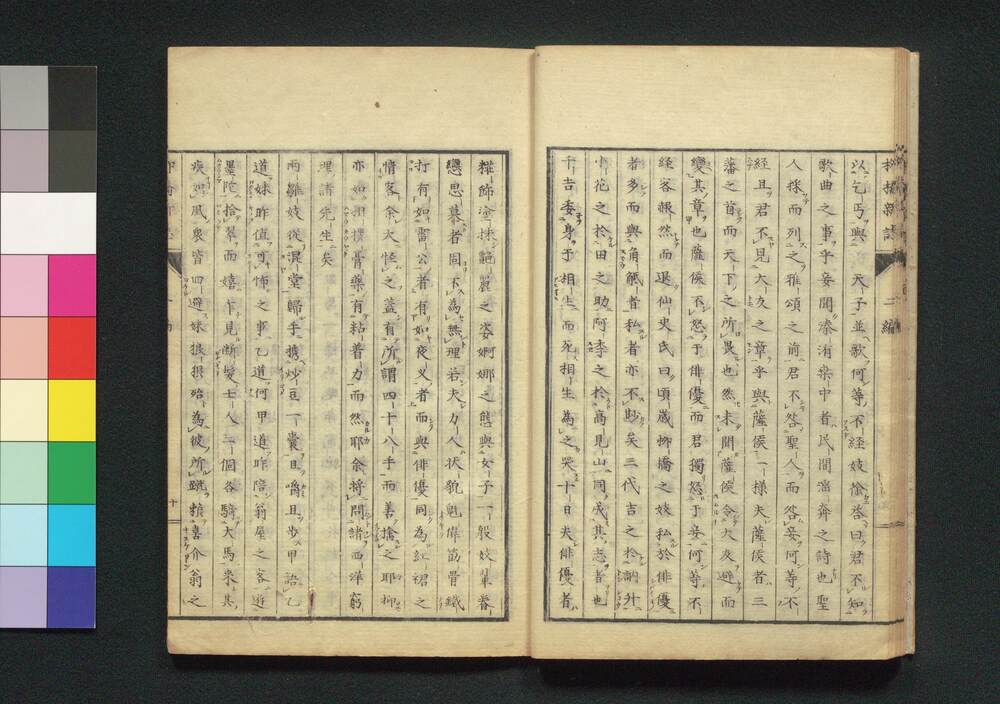 以乞丐與 天子並歌何等不經妓徐答曰君不知
歌曲之事乎妾聞溱洧桑中者民間淫奔之詩也聖
人採而列之雅頌之前君不咎聖人而咎妾何等不
經且君不見大久之章乎與薩侯一樣夫薩侯者三
藩之首而天下之所畏也然未聞薩侯令大久避而
變其章也薩侯不怒于俳優而君獨怒于妾何等不
經客赧然而退仙史氏曰頃歲柳橋之妓私於俳優
者多而與角觝者私者亦不尠矣三代吉之於訥升
小花之於田之助阿李之於高見山同成其志者也
千吉委身于相生而死相生為之哭十日夫俳優者
粧飾塗抹艷麗之姿婀娜之態與女子一般妓輩眷
戀思慕者固不為無理若夫力人狀貌魁偉筋骨鐵
打有如雷公者有如夜叉者而與俳優同為紅裙之
情客余大怪之蓋有所謂四十八手而善擒之耶抑
亦如相撲膏藥有粘着力而然耶余將問諸西洋窮
理諸先生矣
兩雛妓從混堂歸手携炒豆一囊且嚼且步甲語乙
道妹昨值可怖之事乙道何甲道昨陪翁屋之客遊
墨陀拾翠而嬉乍見斷髮士人二個各騎大馬來其
疾如風衆皆四避妹狼狽殆為彼所蹴賴喜介翁之